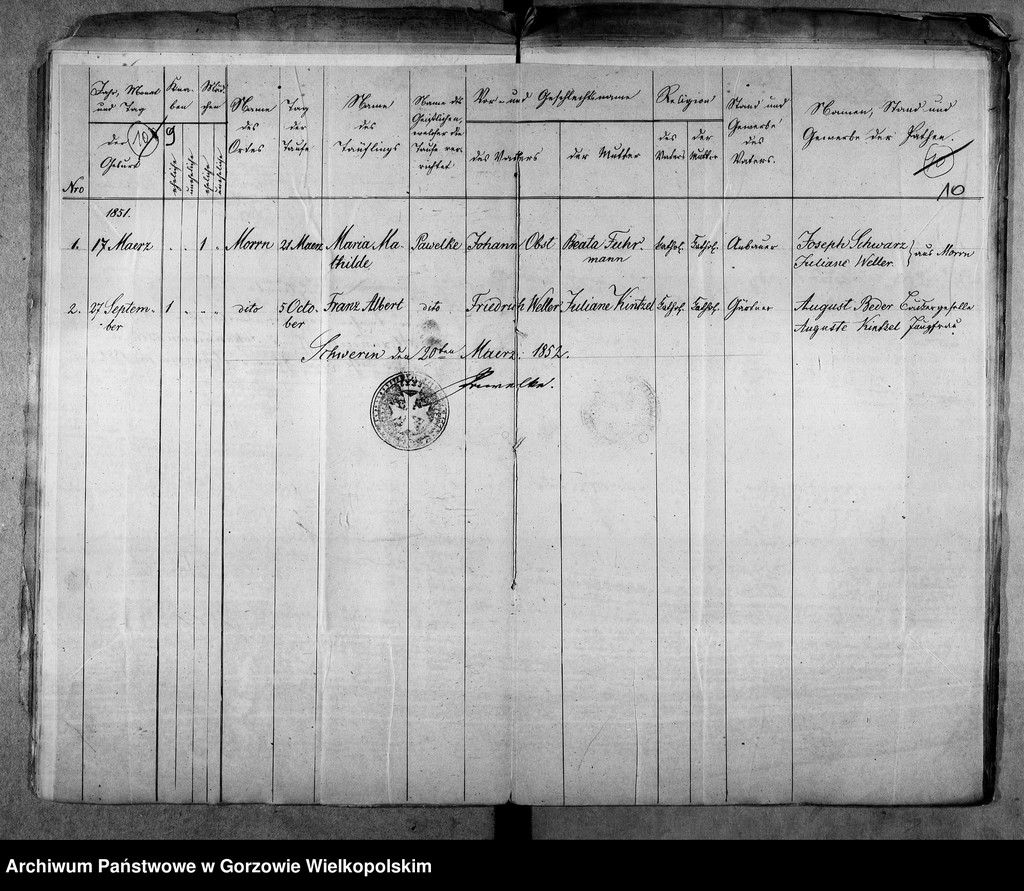 Nro
Jahr, Monat
und Tag
der
Geburt
10
9
Knaben
eheliche
uneheliche
Mädchen
eheliche
uneheliche
Name
des
Ortes
Tag
der
Taufe
Name
des
Täuflings
Name des
Geistlichen,
welcher die
Taufe ver-
richtet.
Vor- und Geschlechtsname
des Vatters
der Mutter
Religion
des
Vaters
der
Mutter
Stand und
Gewerbe
des
Vaters.
Namen, Stand und
Gewerbe der Pathen.
10
10
1851.
1. 17 Maerz . . 1 . Morrn 21 Maerz Maria Ma- Pawelke Johann Obst Beata Fuhr- kathol. kathol. Anbauer Joseph Schwarz
thilde mann Juliane Weller. } aus Morrn
2. 27 Septem- 1 . . . dito 5 Octo- Franz Albert dito Friedrich Weller Juliane Kintzel kathol. kathol. Gärtner August Beder
ber ber Auguste Kintzel Jungfrau
Schwerin den 20ten Maerz 1852.
Pawelke.
Archiwum Państwowe w Gorzowie Wielkopolskim